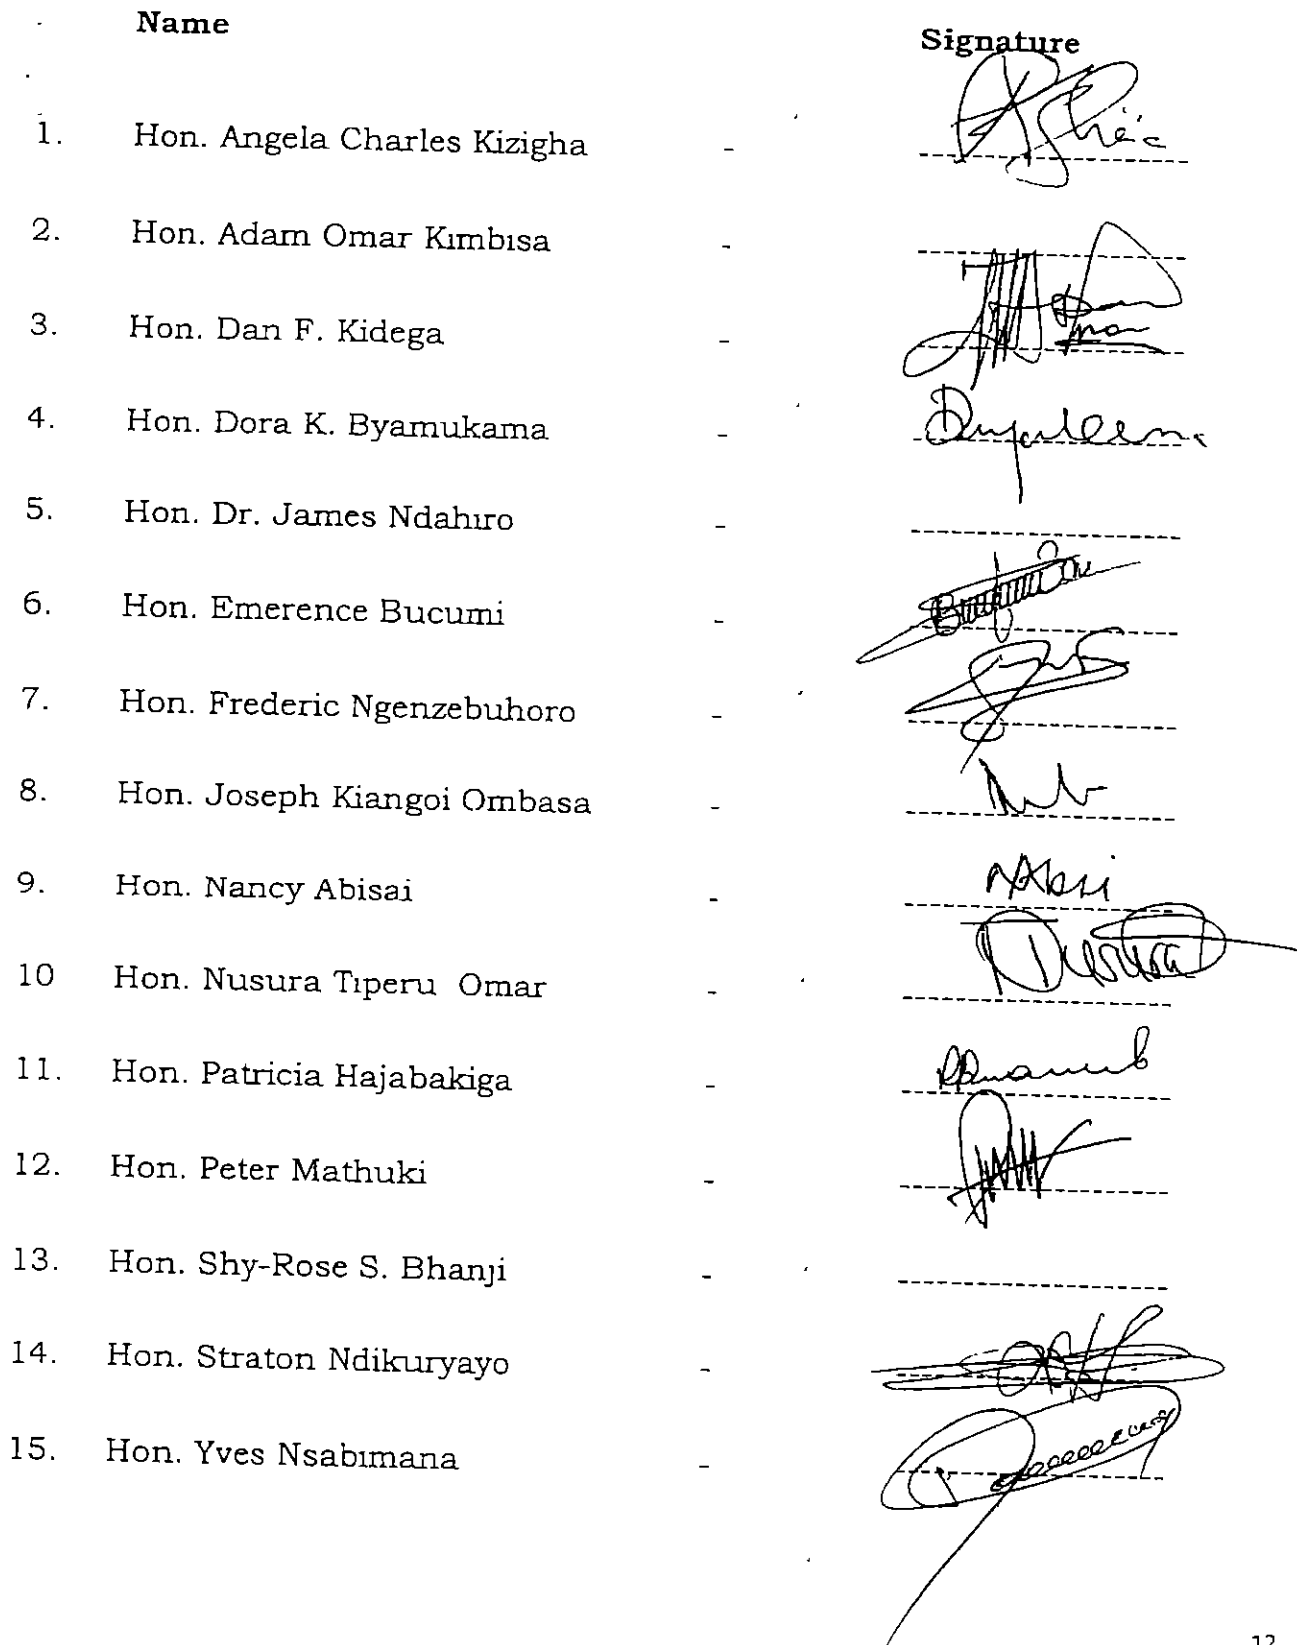 Name Signature
1. Hon. Angela Charles Kizigha -
2. Hon. Adam Omar Kimbisa -
3. Hon. Dan F. Kidega -
4. Hon. Dora K. Byamukama -
5. Hon. Dr. James Ndahiro -
6. Hon. Emerence Bucumi -
7. Hon. Frederic Ngenzebuhoro -
8. Hon. Joseph Kiangoi Ombasa -
9. Hon. Nancy Abisai -
10 Hon. Nusura Tiperu Omar -
11. Hon. Patricia Hajabakiga -
12. Hon. Peter Mathuki -
13. Hon. Shy-Rose S. Bhanji -
14. Hon. Straton Ndikuryayo -
15. Hon. Yves Nsabimana -
12